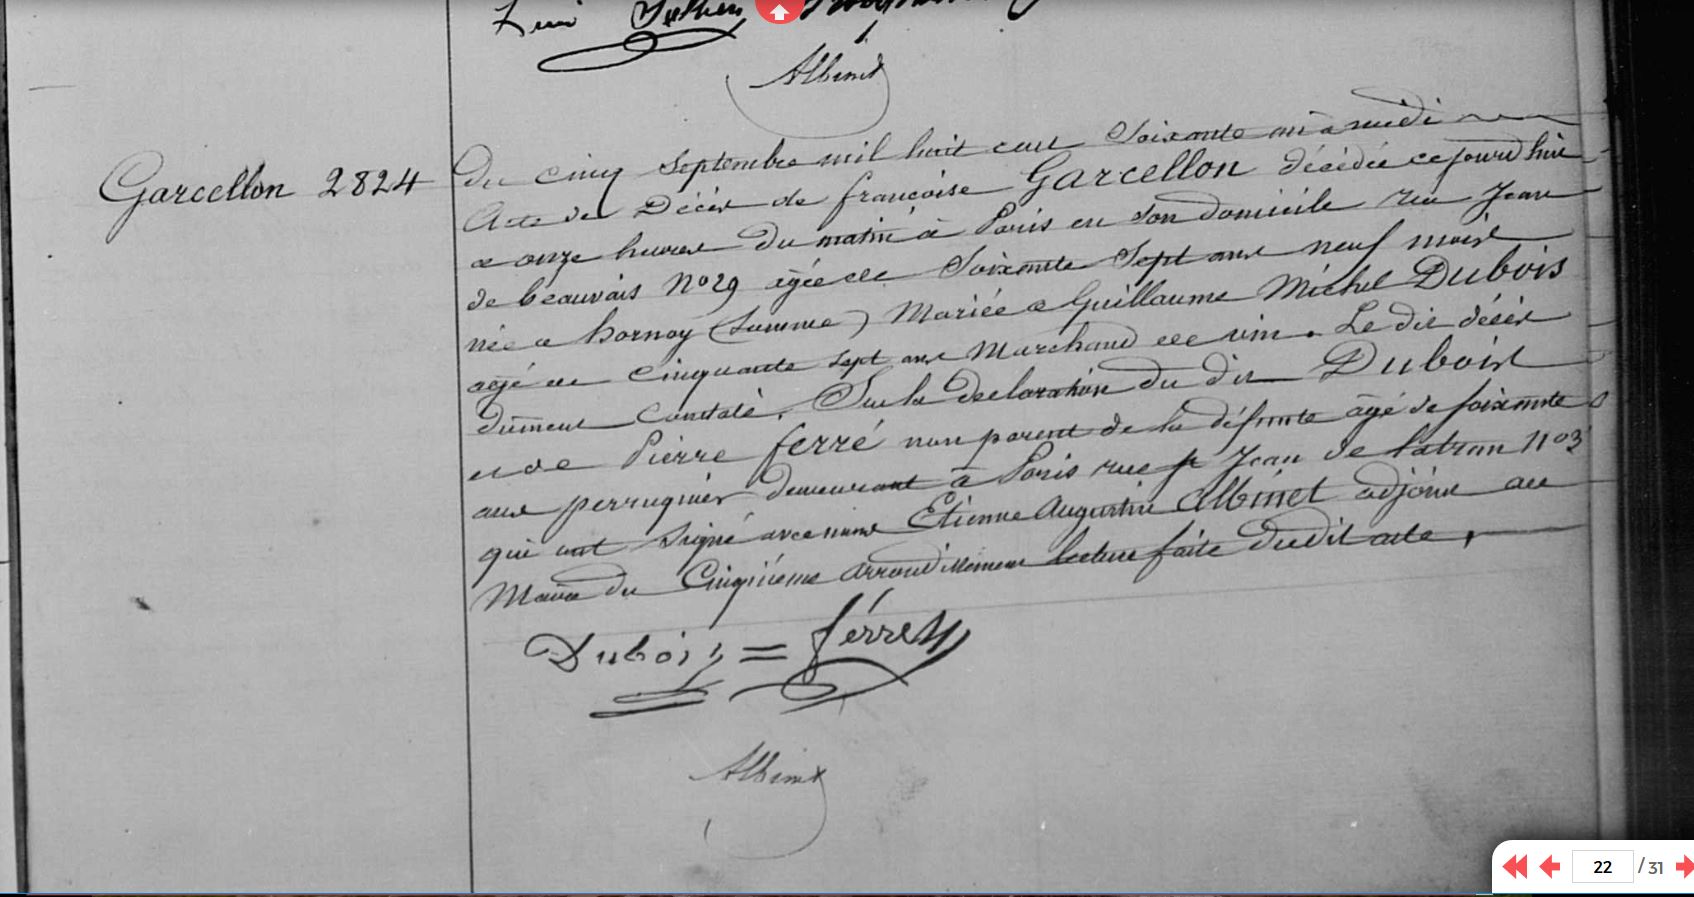 Albinet
Garcellon 2824
Du cinq Septembre mil huit cent Soixante un à midi
Acte de Décès de françoise Garcellon décédée ce jourd'hui
a onze heures du matin à Paris en son domicile rue Jean
de beauvais No 29 agée de Soixante Sept ans neuf mois
née a hornoy (Somme) Mariée a Guillaume Michel Dubois
agé de cinquante sept ans Marchand de vin. Le dit décès
dûment Constaté. Sur la declaration du dit Dubois
et de Pierre ferré non parent de la défunte âgé de soixante
ans perruquier demeurant à Paris rue Jean de latran No 3
qui ont signé avec nous Etienne Augustin Albinet adjoint au
Maire du Cinquième arrondissement lecture faite dudit acte,
Dubois = ferré
Albinet
22 / 31